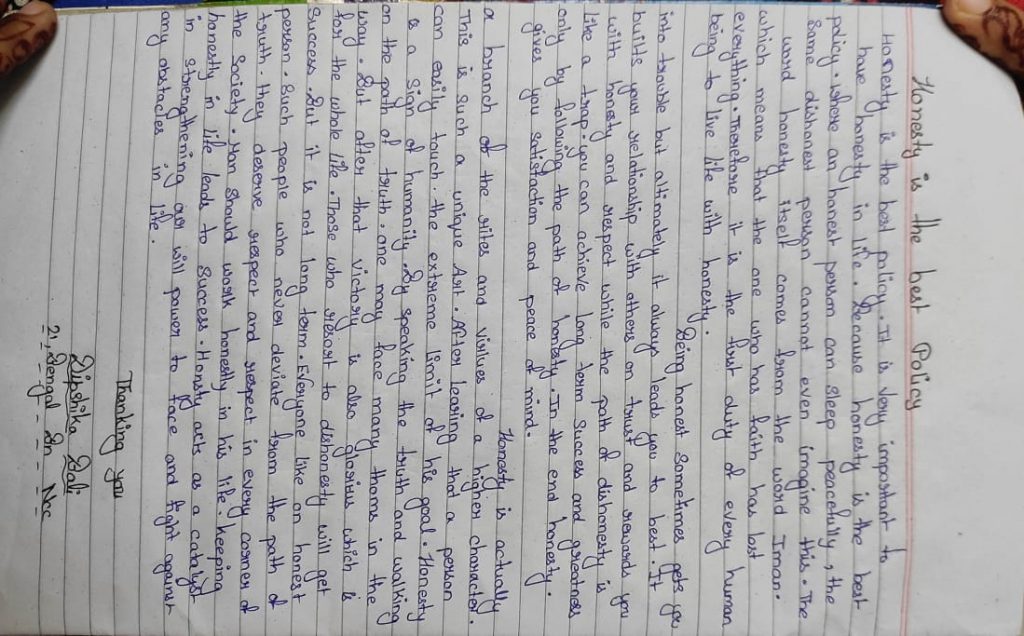 Honesty is the best Policy
Honesty is the best policy. It is very important to
have honesty in life. Because honesty is the best
policy. where an honest person can sleep peacefully, the
same dishonest person cannot even imagine this. The
word honesty itself comes from the word Iman.
which means that the one who has faith has lost
everything. Therefore it is the first duty of every human
being to live life with honesty.
Being honest sometimes gets you
into trouble but altimately it always leads you to best. It
builds your relationship with others on trust and rewards you
with honesty and respect while the path of dishonesty is
like a trap. you can achieve long term success and greatness
only by following the path of honesty. In the end honesty.
gives you satisfaction and peace of mind.
Honesty is actually
a branch of the rites and virtues of a higher character.
This is such a unique Art. After learing that a person
can easily touch the extreme limit of his goal. Honesty
is a sign of humanity. By speaking the truth and walking
on the path of truth. one may face many thorns in the
way. But after that victory is also glorius which is
for the whole life. Those who resort to dishonesty will get
success. But it is not long term. Everyone like an honest
person. Such people who never deviate from the path of
truth. they deserve respect and respect in every corner of
the Society. Man should work honestly in his life. keeping
honestly in life leads to success. Honsty acts as a catalyst
in strengthening our will power to face and fight against
any obstacles in life.
Thanking you
Dipshika
2, Bengal Bn Ncc